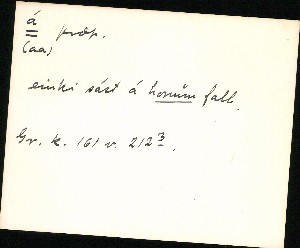 á præp.
(aa)
einki sást á honum fall.
Gr. k. 161 v. 212 3.